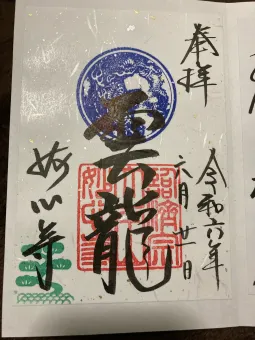 奉拝
令和六年
六月廿一日
雲龍
妙心寺